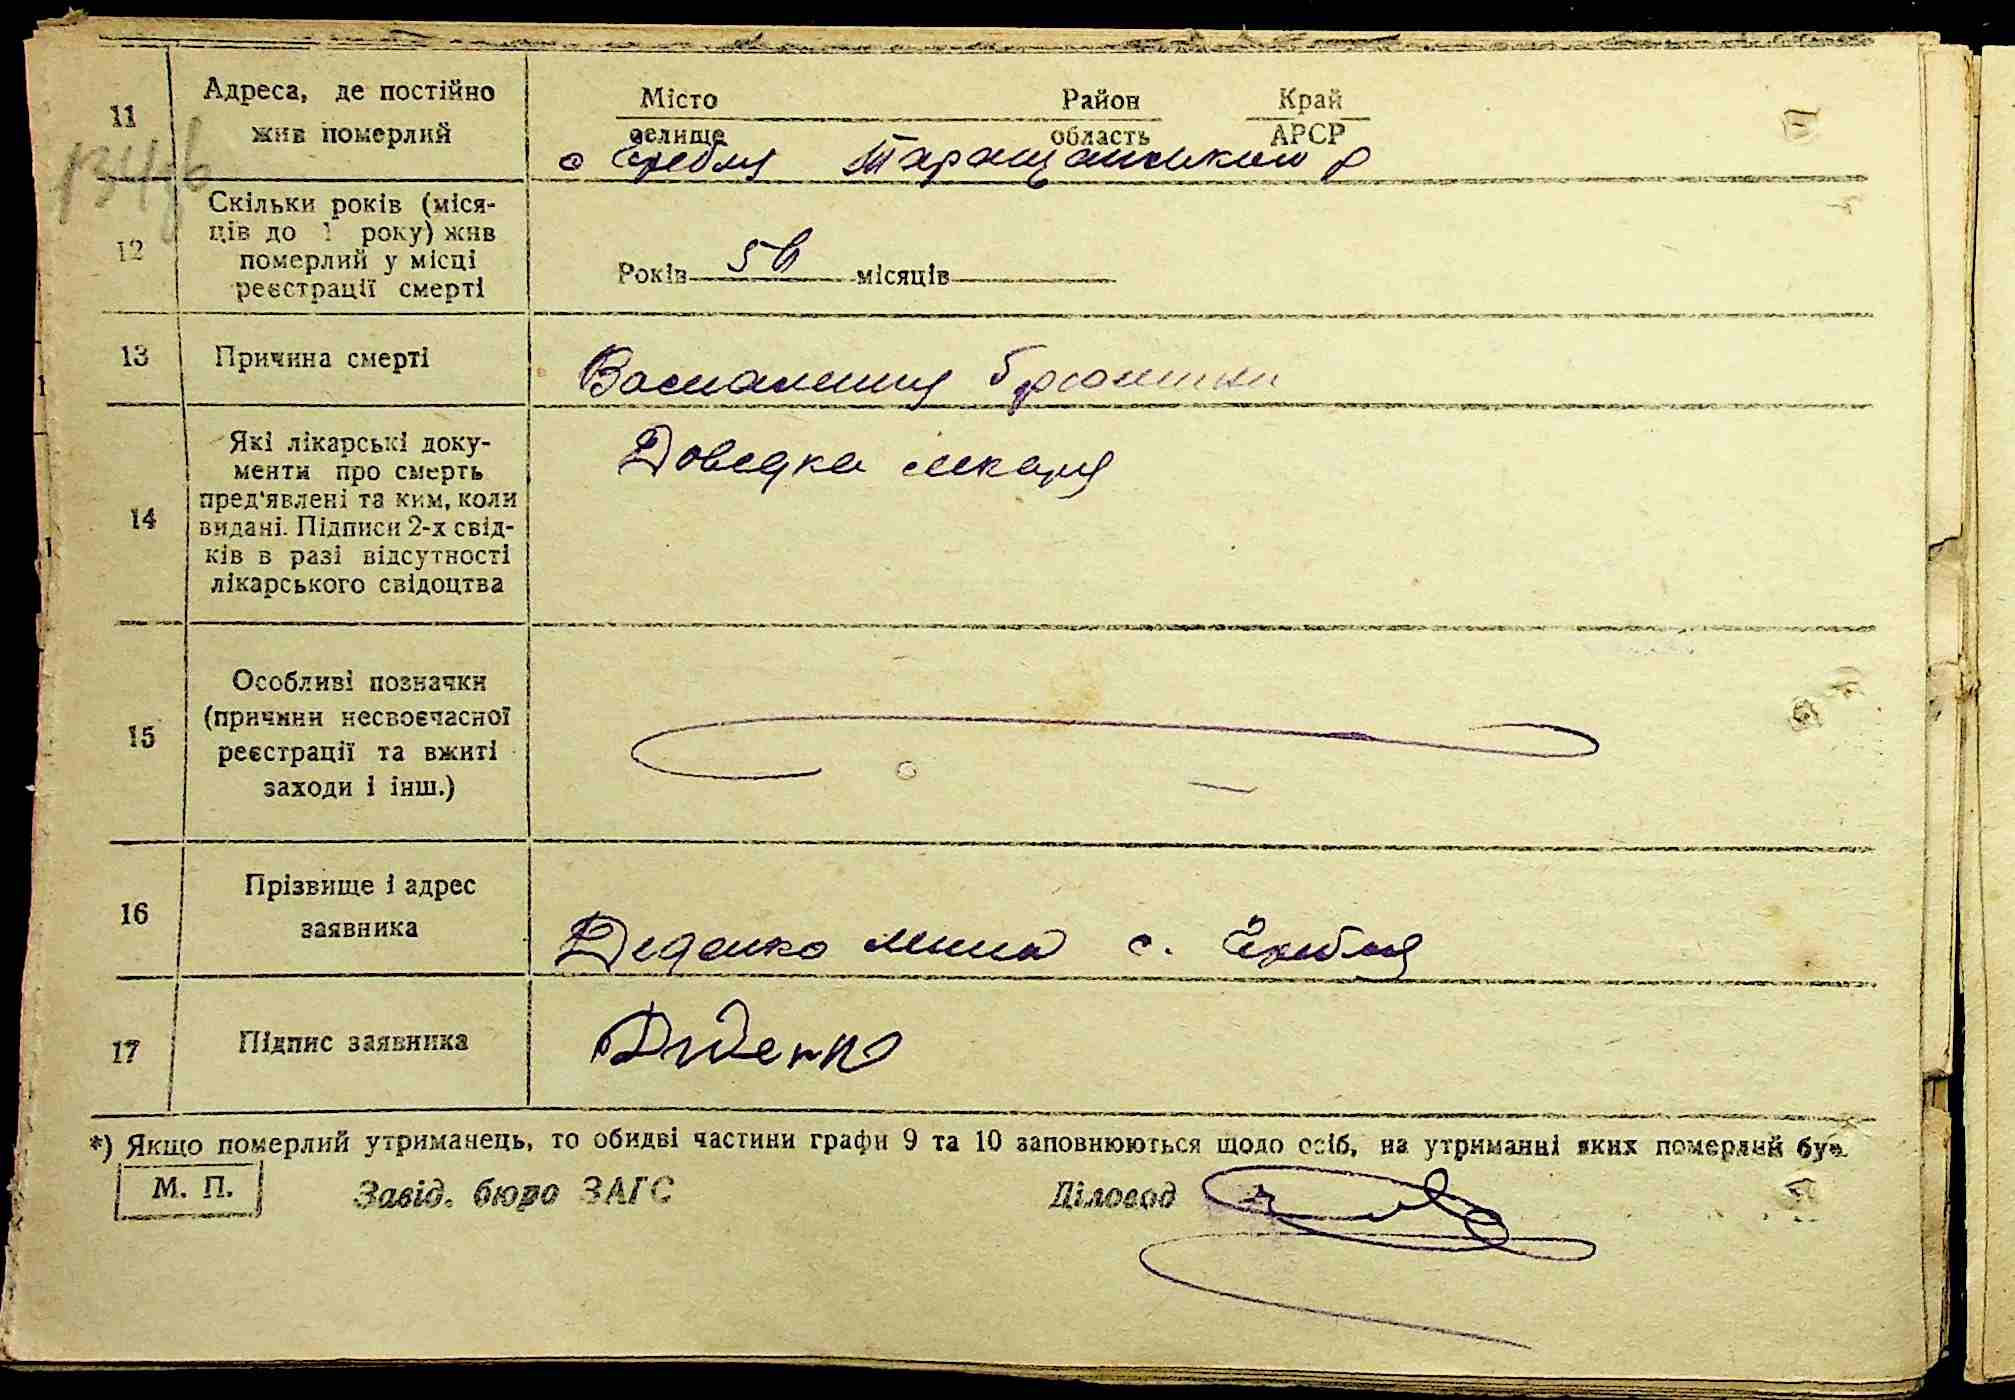 11
Адреса, де постійно
жив померлий
Місто Район Край
селище область АРСР
с Гребля Таращанського р
134
12
Скільки років (міся-
ців до 1 року) жив
померлий у місці
реєстрації смерті
Років 56 місяців
13
Причина смерті
Воспаления брюшини
14
Які лікарські доку-
менти про смерть
пред'явлені та ким, коли
видані. Підписи 2-х свід-
ків в разі відсутності
лікарського свідоцтва
Доведка лекаря
15
Особливі позначки
(причини несвоєчасної
реєстрації та вжиті
заходи і інш.)
16
Прізвище і адрес
заявника
Деденко с. Гребля
17
Підпис заявника
Диденко
*) Якщо померлий утриманець, то обидві частини графи 9 та 10 заповнюються щодо осіб, на утриманні яких померлий був.
М. П. Завід. бюро ЗАГС Діловод